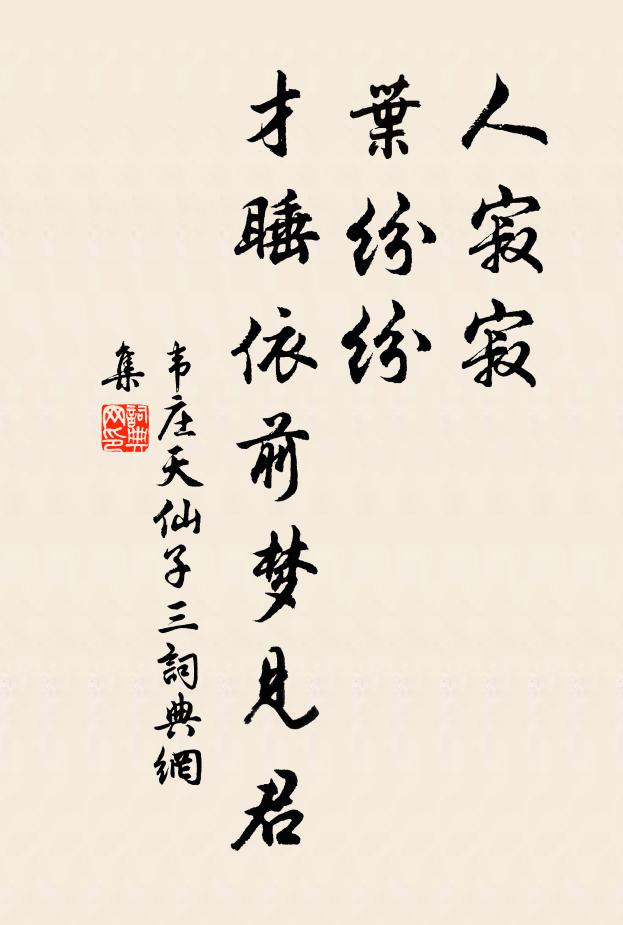 人寂寂
葉纷纷
才睡依前梦見君
韦庄天仙子三詞典網
集
詞典
网印